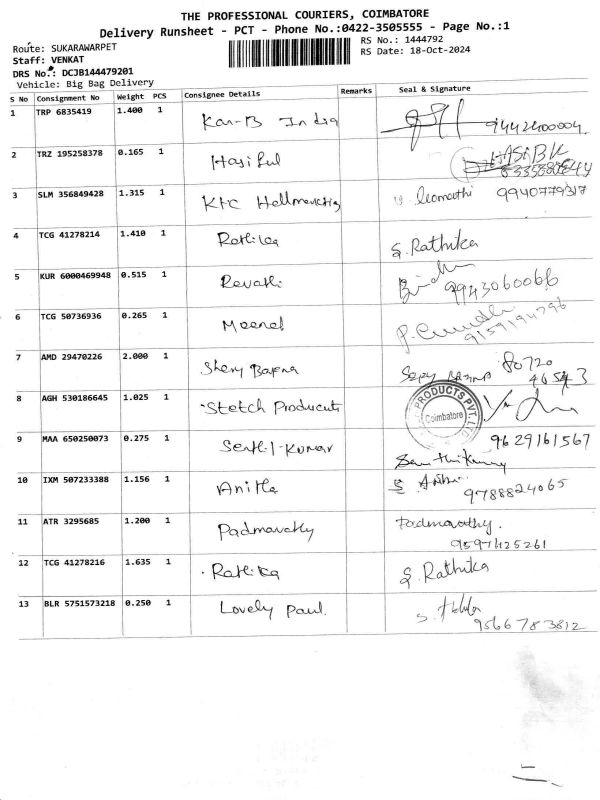 THE PROFESSIONAL COURIERS, COIMBATORE
Delivery Runsheet - PCT - Phone No.:0422-3505555 - Page No.:1
Route: SUKARAWARPET
RS No.: 1444792
Staff: VENKAT
RS Date: 18-Oct-2024
DRS No.: DCJB144479201
Vehicle: Big Bag Delivery
S No Consignment No Weight PCS Consignee Details Remarks Seal & Signature
1 TRP 6835419 1.400 1 Kan-B India 9442400004
2 TRZ 195258378 0.165 1
3 SLM 356849428 1.315 1 KTC 9940779317
4 TCG 41278214 1.410 1 Rathika S. Rathika
5 KUR 6000469948 0.515 1 Revathi 9943060066
6 TCG 50736936 0.265 1 9159194796
7 AMD 29470226 2.000 1 80720
46543
8 AGH 530186645 1.025 1 Stetch Products PRODUCTS PVT. LTD Coimbatore
9 MAA 650250073 0.275 1 Senthil-Kumar 9629161567
10 IXM 507233388 1.156 1 Anitha 9788824065
11 ATR 3295685 1.200 1 Padmavathy Padmavathy.
9597425261
12 TCG 41278216 1.635 1 Rathika S. Rathika
13 BLR 5751573218 0.250 1 Lovely Paul. 9566783812